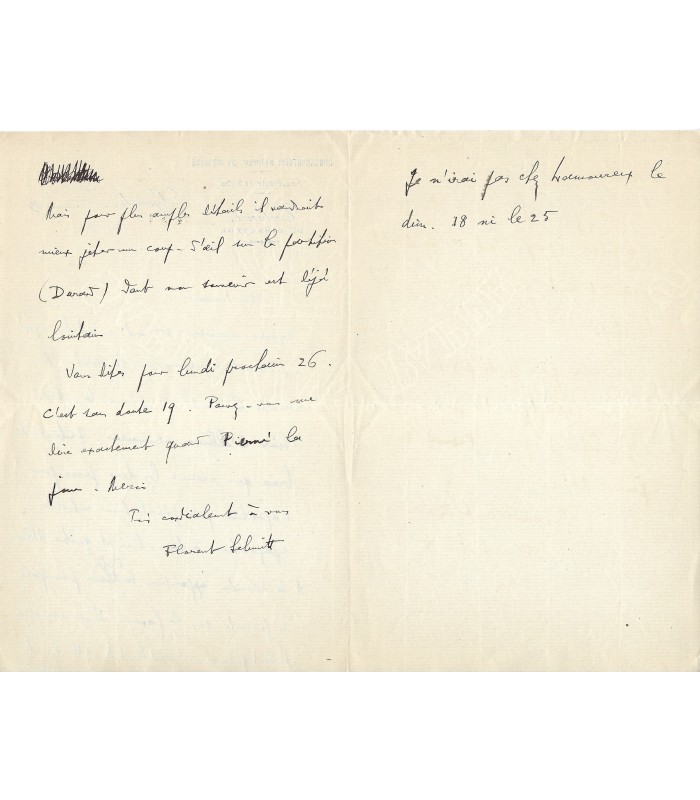 Mais pour plus amples détails il vaudrait
mieux jeter un coup-d'œil sur la partition
(Durand) dont mon souvenir est déjà
lointain
Vous dites pour lundi prochain 26.
C'est sans doute 19. Pouvez-vous me
dire exactement quand Pierné la
joue. Merci
Très cordialement à vous
Florent Schmitt
Je n'irai pas chez Lamoureux le
dim. 18 ni le 25